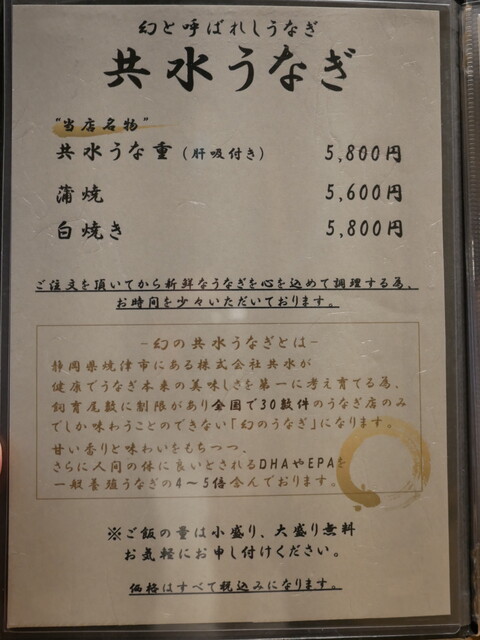 幻と呼ばれしうなぎ
共水うなぎ
"当店名物"
共水うな重(肝吸付き) 5,800円
蒲焼 5,600円
白焼き 5,800円
ご注文を頂いてから新鮮なうなぎを心を込めて調理する為、
お時間を少々いただいております。
-幻の共水うなぎとは-
静岡県焼津市にある株式会社共水が
健康でうなぎ本来の美味しさを第一に考え育てる為、
飼育尾数に制限があり全国で30数件のうなぎ店のみ
でしか味わうことのできない「幻のうなぎ」になります。
甘い香りと味わいをもちつつ、
さらに人間の体に良いとされるDHAやEPAを
一般養殖うなぎの4~5倍含んでおります。
※ご飯の量は小盛り、大盛り無料
お気軽にお申し付けください。
価格はすべて税込みになります。